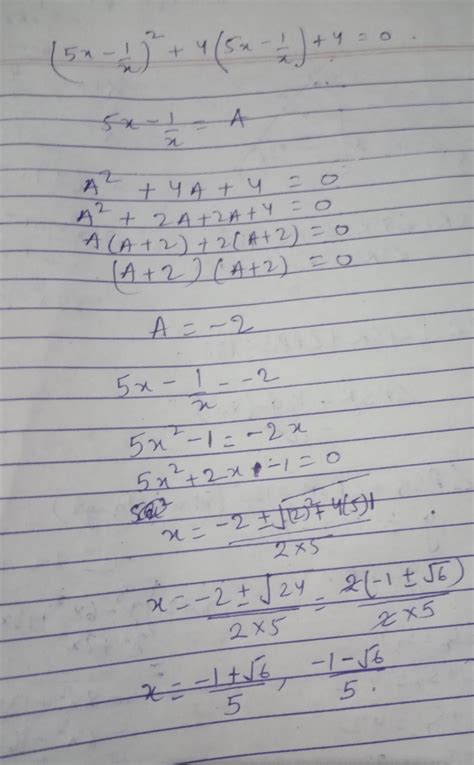 (5x - 1/x)² + 4(5x - 1/x) + 4 = 0.
5x - 1/x = A
A² + 4A + 4 = 0
A² + 2A + 2A + 4 = 0
A(A+2) + 2(A+2) = 0
(A+2) (A+2) = 0
A = -2
5x - 1/x = -2
5x² - 1 = -2x
5x² + 2x - 1 = 0
x = (-2 ± √((2)² + 4(5)1))/(2×5)
x = (-2 ± √24)/(2×5) = 2(-1 ± √6)/(2×5)
x = (-1+√6)/5, (-1-√6)/5.